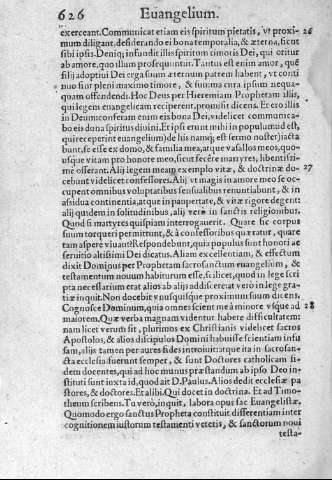 626 Euangelium.
exerceant. Communicat etiam eis spiritum pietatis, vt proxi- 26
mum diligant, desiderando ei bona temporalia, & æterna, sicut
sibi ipsis. Deniq; infundit illis spiritum timoris Dei, qui oritur
ab amore, quo illum prosequuntur. Tantus est enim amor, quē
filij adoptiui Dei erga suum æternum patrem habent, vt conti
nuò sint pleni maximo timore, & summa cura ipsum nequa-
quam offendendi. Hoc Deus per Hieremiam Prophetam illis,
qui legem euangelicam reciperent, promisit dicens. Et ero illis
in Deum: conferam enim eis bona Dei, videlicet communica-
bo eis dona spiritus diuini. Et ipsi erunt mihi in populum: id est,
qui receperint euangelium) de his namq; est sermo noster) iacta
bunt, se esse ex domo, & familia mea, atque vasallos meos, quo-
usque vitam pro honore meo, sicut fecêre martyres, libentissi-
mè offerant. Alij legem meam exemplo vitæ, & doctrinæ do- 27
cebunt videlicet confessores. Alij vt magis in amore meo se oc-
cupent omnibus voluptatibus sensualibus renuntiabunt, & in
assidua continentia, atque in paupertate, & vitæ rigore degent:
alij quidem in solitudinibus, alij verò in sanctis religionibus.
Quod si martyres quispiam interrogauerit. Quare sic corpus
suum torqueri permittunt, & à confessoribus quæratur, quare
tam asperè viuant? Respondebunt, quia populus sunt honori ac
seruitio altissimi Dei dicatus. Aliam excellentiam, & effectum
dixit Dominus per Prophetam sacrosanctum euangelium, &
testamentum nouum habiturum esse, scilicet, quod in lege scri
pta necessarium erat alios ab alijs addiscere: at verò in lege gra-
tiæ inquit. Non docebit vnusquisque proximum suum dicens.
Cognosce Dominum, quia omnes scient me à minore vsque ad 28
maiorem. Quæ verba magnam videntur habere difficultatem:
nam licet verum sit, plurimos ex Christianis videlicet sacros
Apostolos, & alios discipulos Domini habuisse scientiam infu
sam, alijs tamen per aures fides introiuit: atque ita in sacrosan-
cta ecclesia fuerunt semper, & sunt Doctores catholicam fi-
dem docentes, qui ad hoc munus præstandum ab ipso Deo in-
stituti sunt iuxta id, quod ait D. Paulus. Alios dedit ecclesiæ pa
stores, & doctores. Et alibi. Qui docet in doctrina. Et ad Timo-
theum scribens. Tu verò, inquit, labora opus fac Euangelistæ.
Quomodo ergo sanctus Propheta constituit differentiam inter
cognitionem iustorum testamenti veteris, & sanctorum noui
testa-